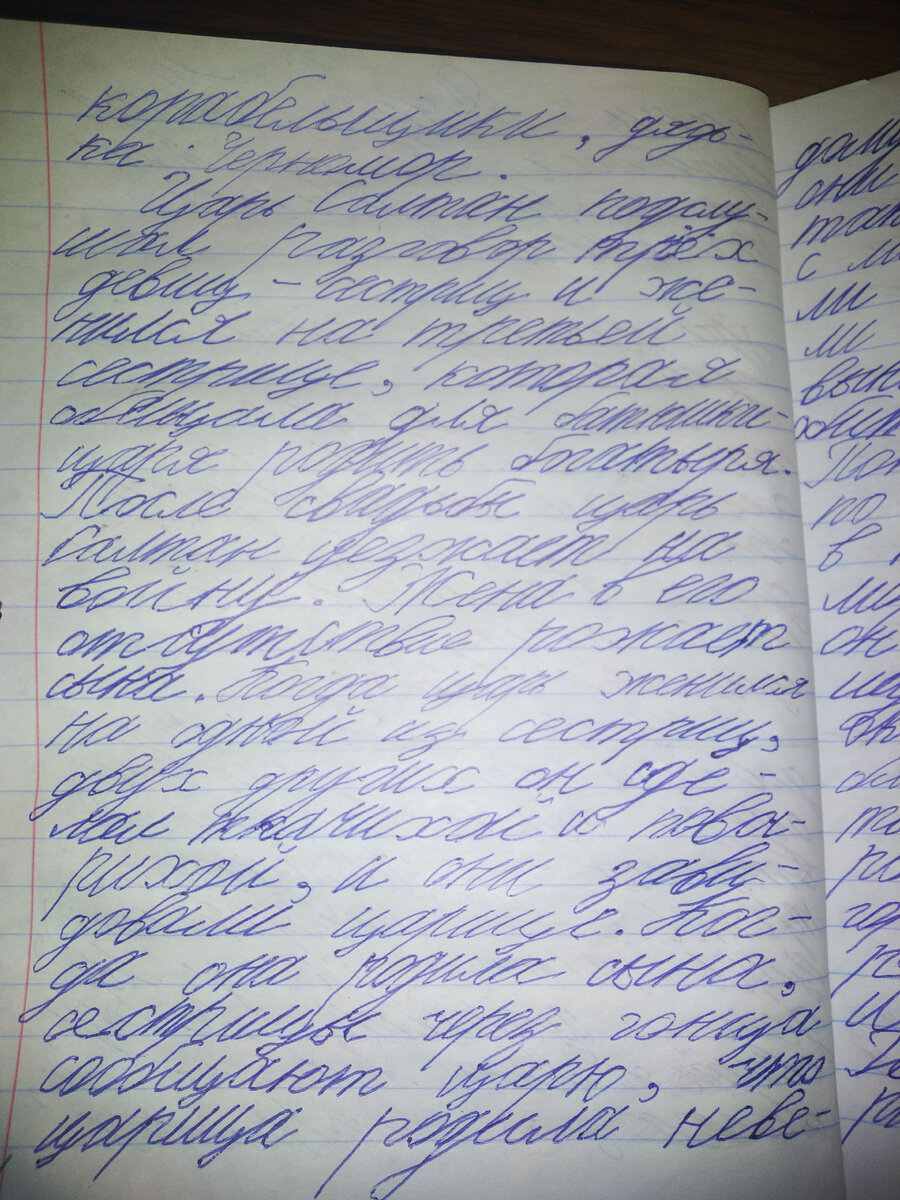 корабельщики, дядь-
ка Черномор.
Царь Салтан подслу-
шал разговор трёх
девиц-сестриц и же-
нился на третьей
сестрице, которая
обещала для батюшки-
царя родить богатыря.
После свадьбы царь
Салтан уезжает на
войну. Жена в его
отсутствие рожает
сына. Когда царь женился
на одной из сестриц,
двух других он сде-
лал ткачихой и пова-
рихой, и они зави-
довали царице. Ког-
да она родила сына,
сестрицы через гонца
сообщают царю, что
царица родила неве-
они
с
ли
ли
по
в
он